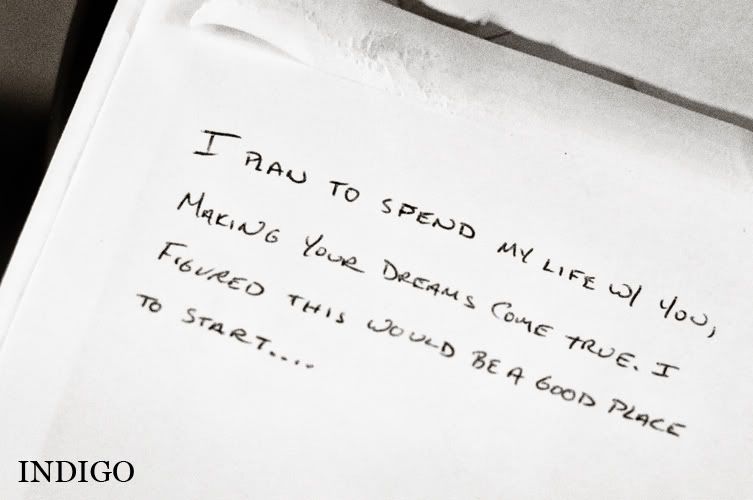 I PLAN TO SPEND MY LIFE W/ YOU,
MAKING YOUR DREAMS COME TRUE. I
FIGURED THIS WOULD BE A GOOD PLACE
TO START....
INDIGO